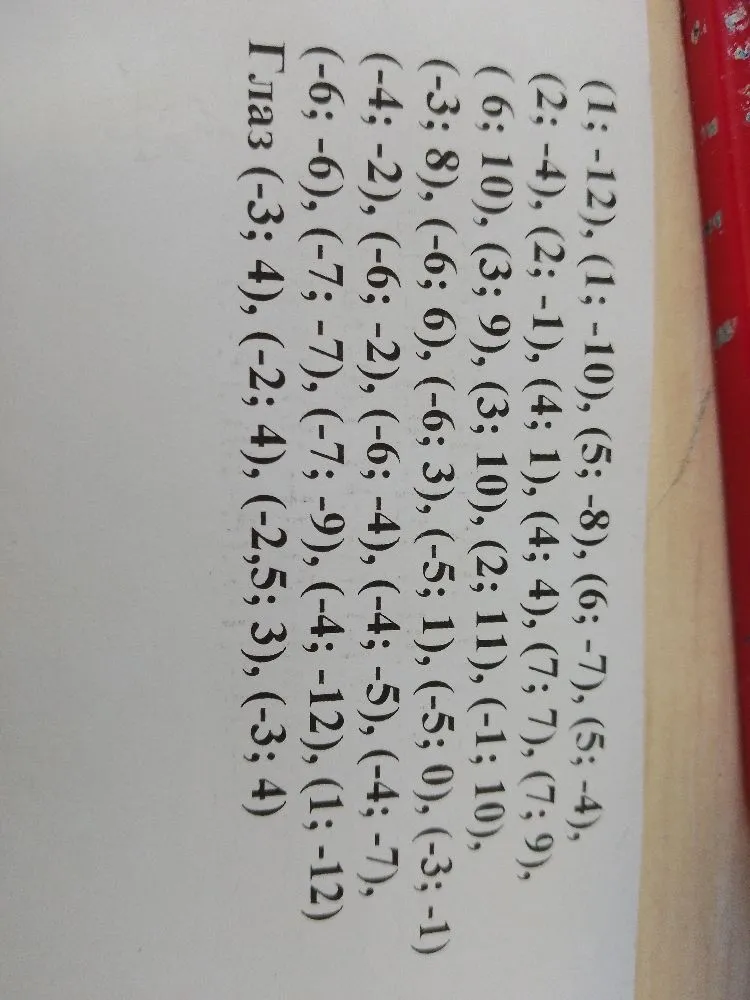 (1; -12), (1; -10), (5; -8), (6; -7), (5; -4),
(2; -4), (2; -1), (4; 1), (4; 4), (7; 7), (7; 9),
( 6; 10), (3; 9), (3; 10), (2; 11), (-1; 10),
(-3; 8), (-6; 6), (-6; 3), (-5; 1), (-5; 0), (-3; -1)
(-4; -2), (-6; -2), (-6; -4), (-4; -5), (-4; -7),
(-6; -6), (-7; -7), (-7; -9), (-4; -12), (1; -12)
Глаз (-3; 4), (-2; 4), (-2,5; 3), (-3; 4)